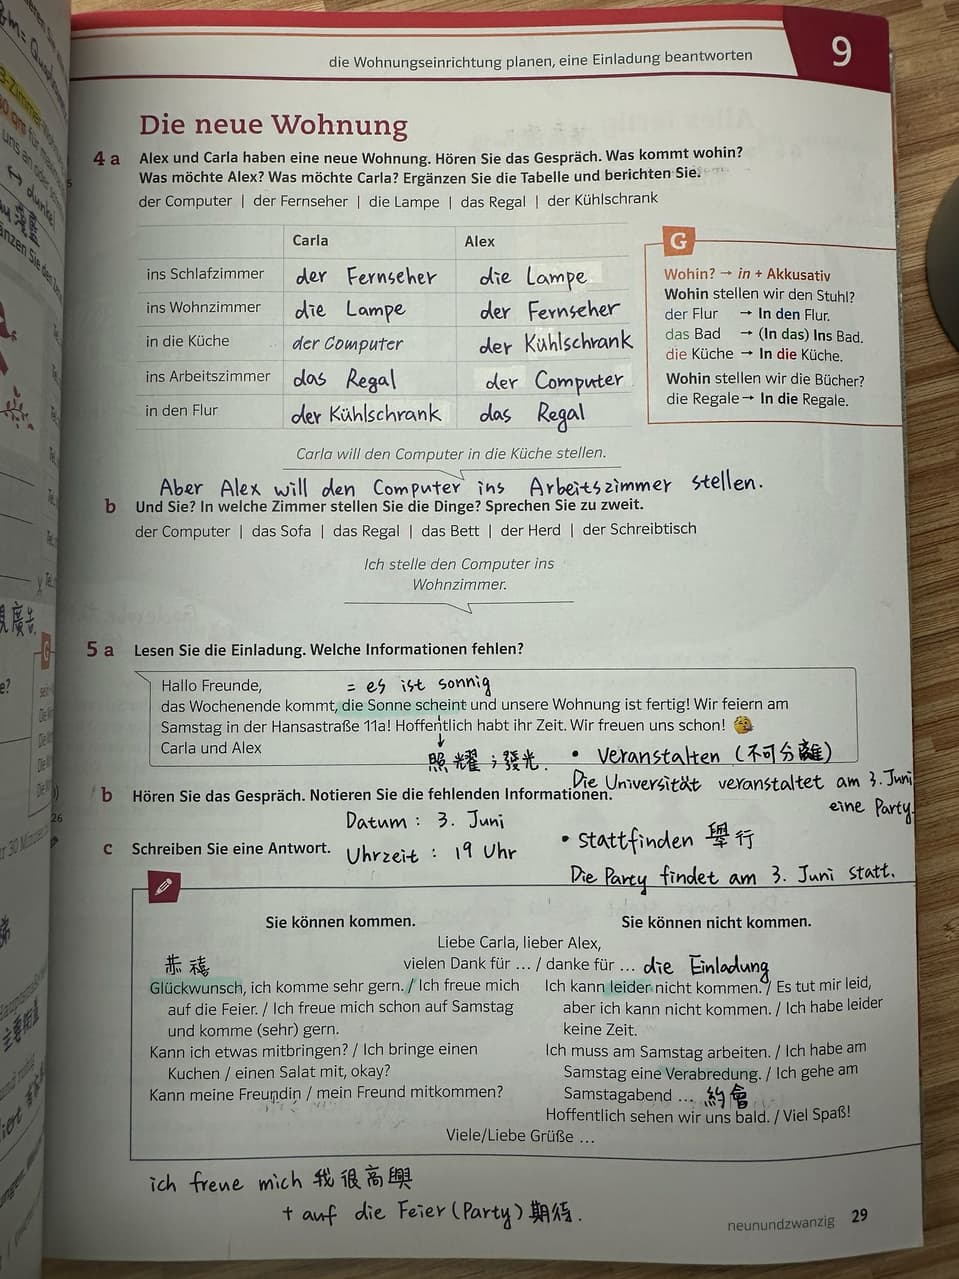 die Wohnungseinrichtung planen, eine Einladung beantworten
9
Die neue Wohnung
4 a Alex und Carla haben eine neue Wohnung. Hören Sie das Gespräch. Was kommt wohin?
Was möchte Alex? Was möchte Carla? Ergänzen Sie die Tabelle und berichten Sie.
der Computer | der Fernseher | die Lampe | das Regal | der Kühlschrank
Carla Alex
ins Schlafzimmer der Fernseher die Lampe
ins Wohnzimmer die Lampe der Fernseher
in die Küche der Computer der Kühlschrank
ins Arbeitszimmer das Regal der Computer
in den Flur der Kühlschrank das Regal
G
Wohin? → in + Akkusativ
Wohin stellen wir den Stuhl?
der Flur → In den Flur.
das Bad → (In das) Ins Bad.
die Küche → In die Küche.
Wohin stellen wir die Bücher?
die Regale → In die Regale.
Carla will den Computer in die Küche stellen.
Aber Alex will den Computer ins Arbeitszimmer stellen.
b Und Sie? In welche Zimmer stellen Sie die Dinge? Sprechen Sie zu zweit.
der Computer | das Sofa | das Regal | das Bett | der Herd | der Schreibtisch
Ich stelle den Computer ins
Wohnzimmer.
5 a Lesen Sie die Einladung. Welche Informationen fehlen?
Hallo Freunde,
= es ist sonnig
das Wochenende kommt, die Sonne scheint und unsere Wohnung ist fertig! Wir feiern am
Samstag in der Hansastraße 11a! Hoffentlich habt ihr Zeit. Wir freuen uns schon!
Carla und Alex
照耀；發光.
• veranstalten (不可分離)
Die Universität veranstaltet am 3. Juni
eine Party.
b Hören Sie das Gespräch. Notieren Sie die fehlenden Informationen.
Datum : 3. Juni
Uhrzeit : 19 Uhr
• stattfinden 舉行
Die Party findet am 3. Juni statt.
c Schreiben Sie eine Antwort.
Sie können kommen.
Sie können nicht kommen.
Liebe Carla, lieber Alex,
vielen Dank für … / danke für … die Einladung
恭禧
Glückwunsch, ich komme sehr gern. / Ich freue mich
auf die Feier. / Ich freue mich schon auf Samstag
und komme (sehr) gern.
Kann ich etwas mitbringen? / Ich bringe einen
Kuchen / einen Salat mit, okay?
Kann meine Freundin / mein Freund mitkommen?
Ich kann leider nicht kommen. / Es tut mir leid,
aber ich kann nicht kommen. / Ich habe leider
keine Zeit.
Ich muss am Samstag arbeiten. / Ich habe am
Samstag eine Verabredung. / Ich gehe am
Samstagabend … 約會
Hoffentlich sehen wir uns bald. / Viel Spaß!
Viele/Liebe Grüße …
ich freue mich 我很高興
+ auf die Feier (Party) 期待.
neunundzwanzig 29